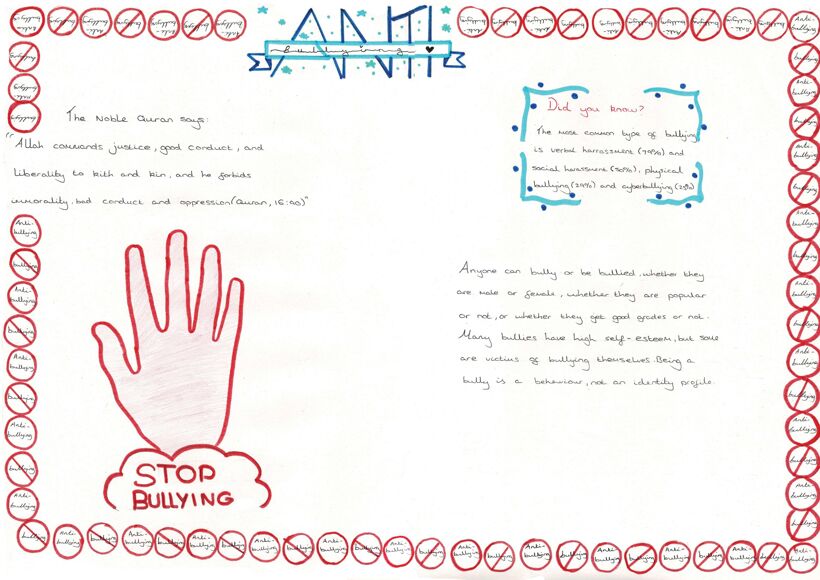 ANTI
bullying
The Noble Quran says:
"Allah commands justice, good conduct, and
liberality to kith and kin, and he forbids
immorality, bad conduct and oppression(Quran, 16:90)"
STOP
BULLYING
Did you know?
The most common type of bullying
is verbal harrassment (79%) and
social harassment (50%), physical
bullying (29%) and cyberbullying (25%)
Anyone can bully or be bullied, whether they
are male or female, whether they are popular
or not, or whether they get good grades or not.
Many bullies have high self-esteem, but some
are victims of bullying themselves. Being a
bully is a behaviour, not an identity profile.
Anti-
bullying